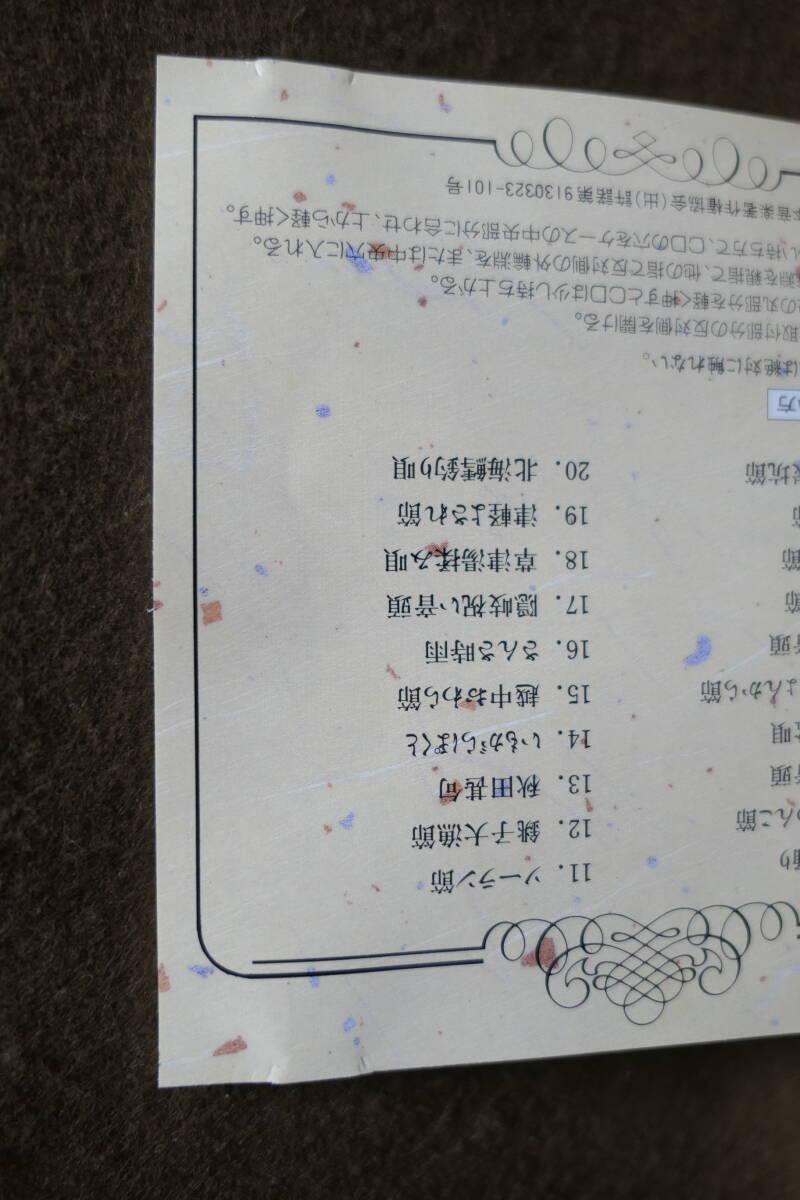 踊り
11. ソーラン節
んこ節
12. 銚子大漁節
音頭
13. 秋田甚句
唄
14. いもがらぼくと
よんから節
15. 越中おわら節
音頭
16. さんさ時雨
節
17. 隠岐祝い音頭
節
18. 草津湯揉み唄
節
19. 津軽よされ節
炭坑節
20. 北海鱈釣り唄
い方
は絶対に触れない。
取付部分の反対側を開ける。
の丸部分を軽く押すとCDは少し持ち上がる。
淵を親指で、他の指で反対側の外輪淵を、または中央穴に入れる。
い持ち方で、CDの穴をケースの中央部分に合わせ、上から軽く押す。
本音楽著作権協会(出)許諾第9130323-101号